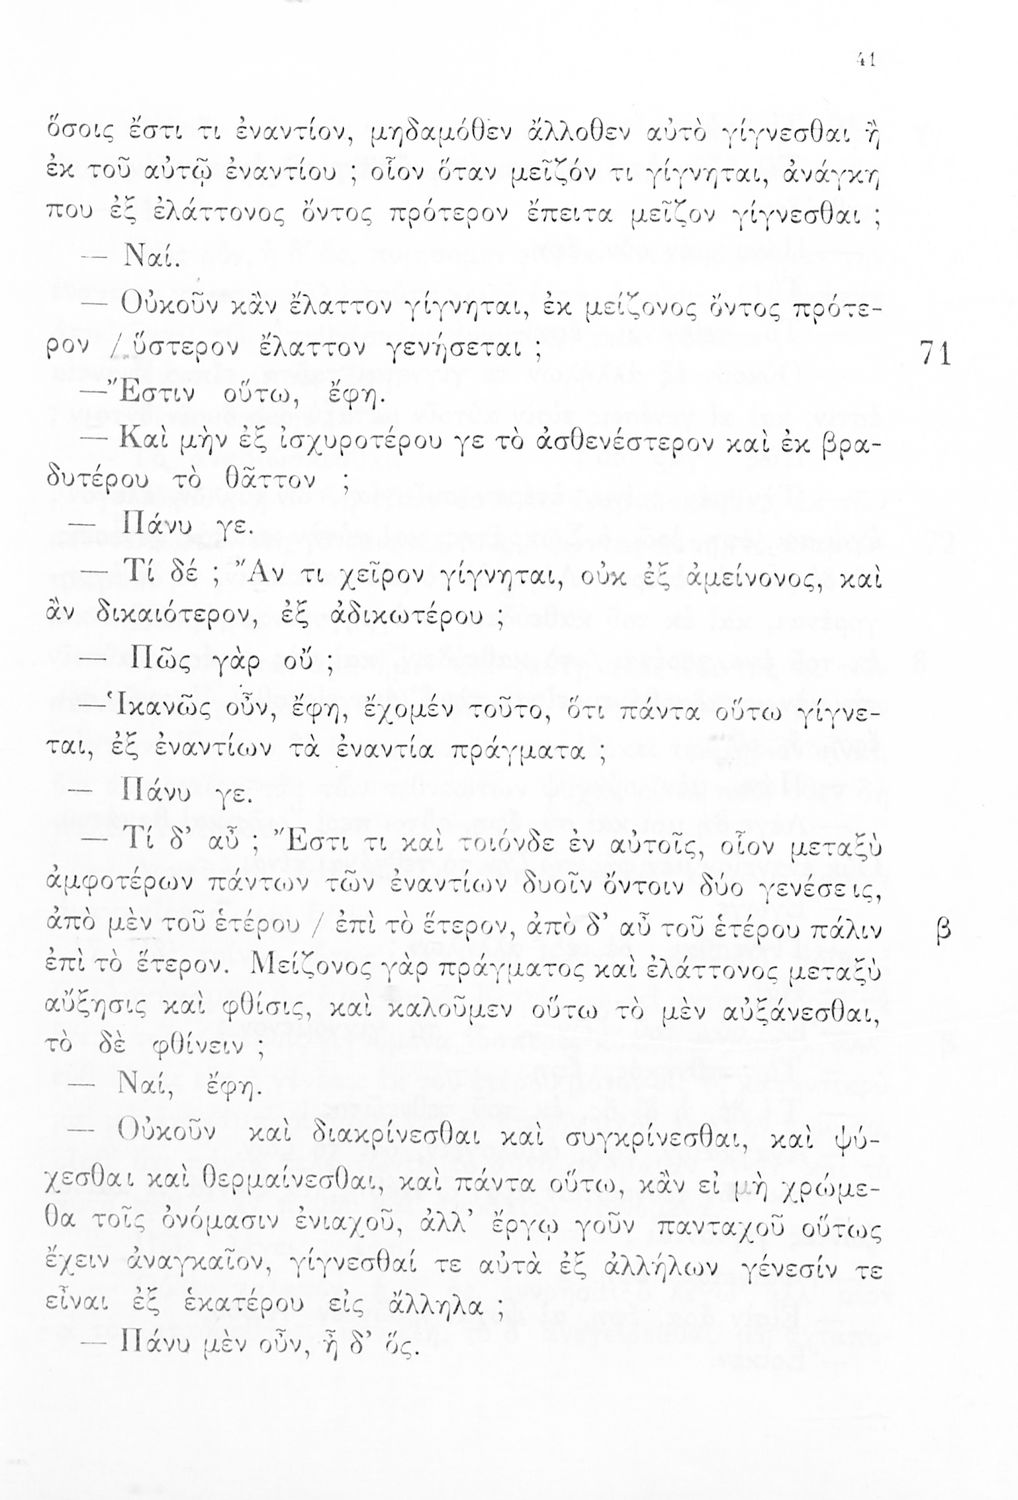 41
ὅσοις ἔστι τι ἐναντίον, μηδαμόθεν ἄλλοθεν αὐτὸ γίγνεσθαι ἢ
ἐκ τοῦ αὐτῷ ἐναντίου ; οἷον ὅταν μεῖζόν τι γίγνηται, ἀνάγκη
που ἐξ ἐλάττονος ὄντος πρότερον ἔπειτα μεῖζον γίγνεσθαι ;
— Ναί.
— Οὐκοῦν κἂν ἔλαττον γίγνηται, ἐκ μείζονος ὄντος πρότε-
ρον / ὕστερον ἔλαττον γενήσεται ; 71
—"Εστιν οὕτω, ἔφη.
— Καὶ μὴν ἐξ ἰσχυροτέρου γε τὸ ἀσθενέστερον καὶ ἐκ βρα-
δυτέρου τὸ θᾶττον ;
— Πάνυ γε.
— Τί δέ ; "Αν τι χεῖρον γίγνηται, οὐκ ἐξ ἀμείνονος, καὶ
ἂν δικαιότερον, ἐξ ἀδικωτέρου ;
— Πῶς γὰρ οὔ ;
—'Ικανῶς οὖν, ἔφη, ἔχομέν τοῦτο, ὅτι πάντα οὕτω γίγνε-
ται, ἐξ ἐναντίων τὰ ἐναντία πράγματα ;
— Πάνυ γε.
— Τί δ' αὖ ; "Εστι τι καὶ τοιόνδε ἐν αὐτοῖς, οἷον μεταξὺ
ἀμφοτέρων πάντων τῶν ἐναντίων δυοῖν ὄντοιν δύο γενέσεις,
ἀπὸ μὲν τοῦ ἑτέρου / ἐπὶ τὸ ἕτερον, ἀπὸ δ' αὖ τοῦ ἑτέρου πάλιν β
ἐπὶ τὸ ἕτερον. Μείζονος γὰρ πράγματος καὶ ἐλάττονος μεταξὺ
αὔξησις καὶ φθίσις, καὶ καλοῦμεν οὕτω τὸ μὲν αὐξάνεσθαι,
τὸ δὲ φθίνειν ;
— Ναί, ἔφη.
— Οὐκοῦν καὶ διακρίνεσθαι καὶ συγκρίνεσθαι, καὶ ψύ-
χεσθαι καὶ θερμαίνεσθαι, καὶ πάντα οὕτω, κἂν εἰ μὴ χρώμε-
θα τοῖς ὀνόμασιν ἐνιαχοῦ, ἀλλ' ἔργῳ γοῦν πανταχοῦ οὕτως
ἔχειν ἀναγκαῖον, γίγνεσθαί τε αὐτὰ ἐξ ἀλλήλων γένεσίν τε
εἶναι ἐξ ἑκατέρου εἰς ἄλληλα ;
— Πάνυ μὲν οὖν, ἦ δ' ὅς.